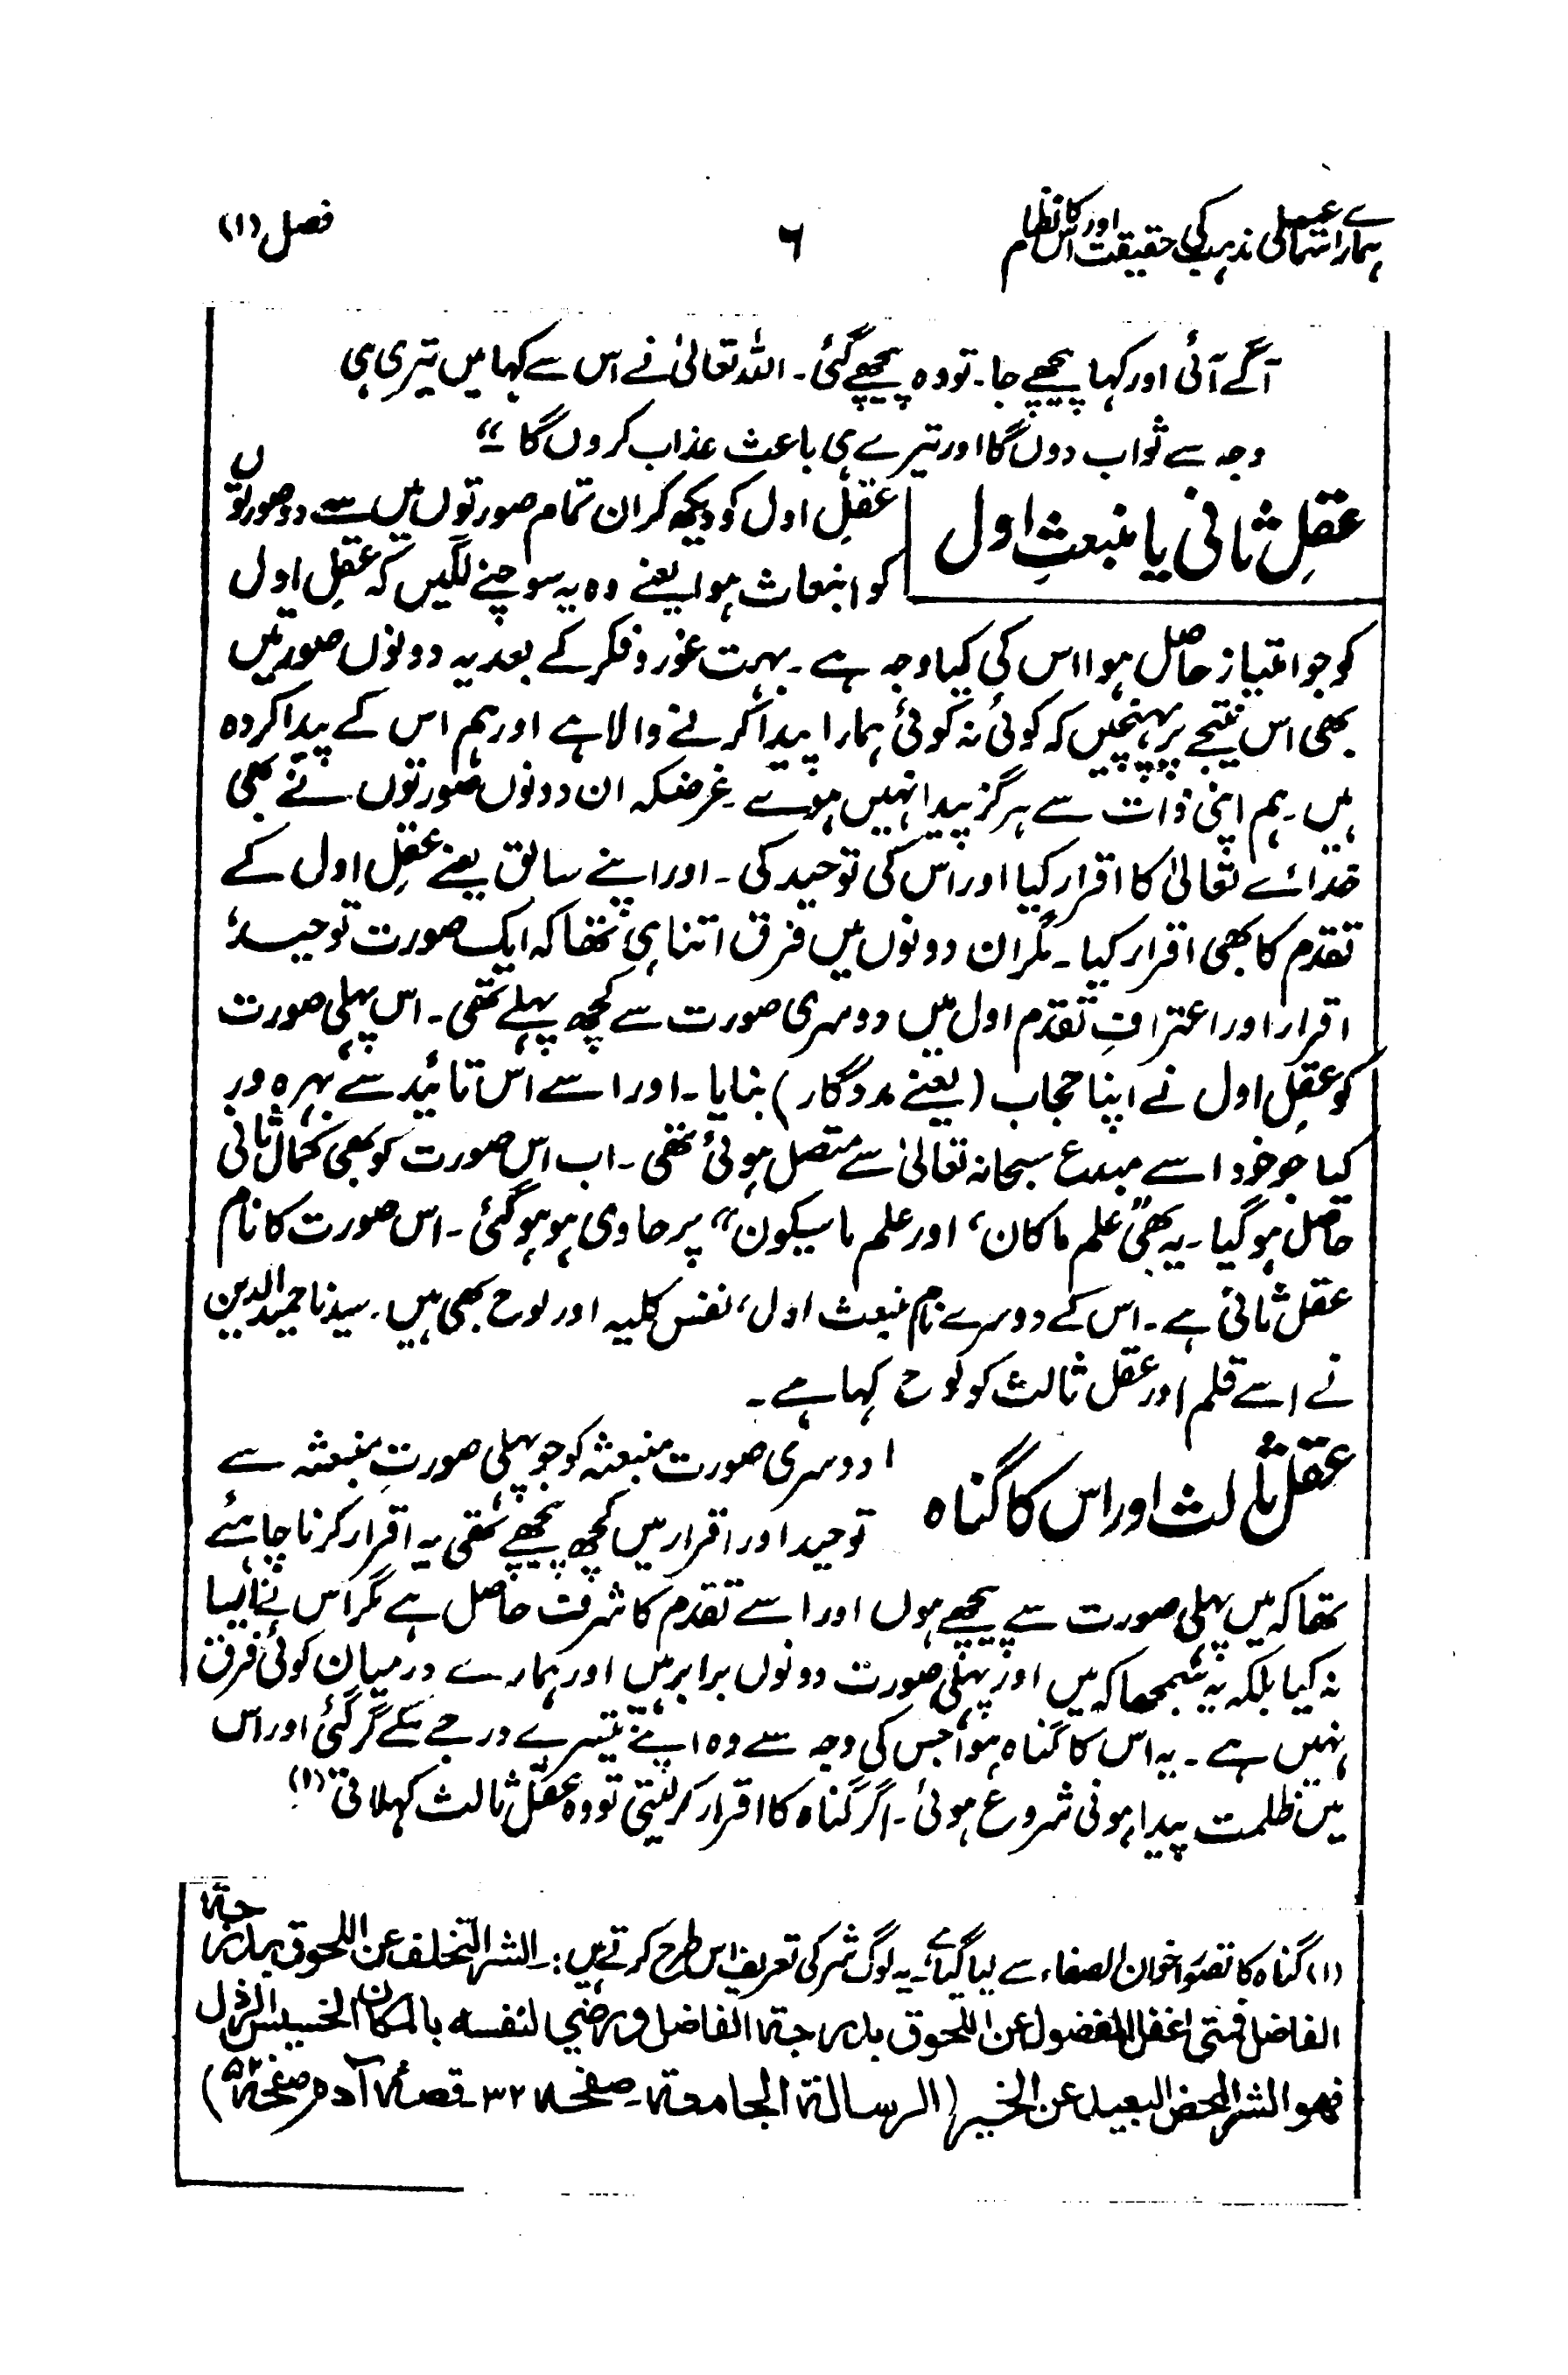 ہمارے اسمٰعیلی مذہب کی حقیقت اور اس کا نظام ۶ فصل (۱)
آگے آئی اور کہا پیچھے جا۔ تو وہ پیچھے گئی۔ اللہ تعالیٰ نے اس سے کہا میں تیری ہی
وجہ سے ثواب دوں گا اور تیرے ہی باعث عذاب کروں گا ‘‘
عقلِ ثانی یا منبعثِ اول
عقلِ اول کو دیکھ کر ان تمام صورتوں میں سے دو صورتوں
کو انبعاث ہوا یعنے وہ یہ سوچنے لگیں کہ عقلِ اول
کو جو امتیاز حاصل ہوا اس کی کیا وجہ ہے۔ بہت غور و فکر کے بعد یہ دونوں صورتیں
بھی اس نتیجے پر پہنچیں کہ کوئی نہ کوئی ہمارا پیدا کرنے والا ہے اور ہم اس کے پیدا کردہ
ہیں۔ ہم اپنی ذات سے ہرگز پیدا نہیں ہوئے۔ غرضکہ ان دونوں صورتوں نے بھی
خدائے تعالیٰ کا اقرار کیا اور اس کی توحید کی۔ اور اپنے سابق یعنے عقلِ اول کے
تقدم کا بھی اقرار کیا۔ مگر ان دونوں میں فرق اتنا ہی تھا کہ ایک صورت توحید،
اقرار اور اعترافِ تقدم اول میں دوسری صورت سے کچھ پہلے تھی۔ اس پہلی صورت
کو عقلِ اول نے اپنا حجاب (یعنے مددگار) بنایا۔ اور اسے اس تائید سے بہرہ ور
کیا جو خود اسے مبدع سبحانہ تعالیٰ سے متصل ہوئی تھی۔ اب اس صورت کو بھی کمال ثانی
حاصل ہو گیا۔ یہ بھی ’’علم ما کان، اور علم ما سیکون‘‘ پر حاوی ہو ہو گئی۔ اس صورت کا نام
عقل ثانی ہے۔ اس کے دوسرے نام منبعث اول، نفس کلیہ اور لوح بھی ہیں۔ سیدنا حمید الدین
نے اسے قلم اور عقل ثالث کو لوح کہا ہے۔
عقل ثالث اور اس کا گناہ
دوسری صورت منبعثہ کو جو پہلی صورتِ منبعثہ سے
توحید اور اقرار میں کچھ پیچھے تھی یہ اقرار کرنا چاہئے
تھا کہ میں پہلی صورت سے پیچھے ہوں اور اسے تقدم کا شرف حاصل ہے مگر اس نے ایسا
نہ کیا بلکہ یہ سمجھا کہ میں اور پہلی صورت دونوں برابر ہیں اور ہمارے درمیان کوئی فرق
نہیں ہے۔ یہ اس کا گناہ ہوا جس کی وجہ سے وہ اپنے تیسرے درجے سے گر گئی اور اس
میں ظلمت پیدا ہونی شروع ہوئی۔ اگر گناہ کا اقرار کر لیتی تو وہ عقل ثالث کہلاتی (۱)
(۱) گناہ کا تصور اخوان الصفاء سے لیا گیا ہے۔ یہ لوگ شر کی تعریف اس طرح کرتے ہیں:۔ الشر التخلف عن اللحوق بدرجة
الفاضل فمتی اغفل المفضول عن اللحوق بدرجة الفاضل ورضي لنفسه بالمکان الخسیس الرذل
فهو الشر المحض البعید عن الخیر (الرسالة الجامعة۔ صفحه ۳۲ قصهٔ آدم صفحه ۵۲)